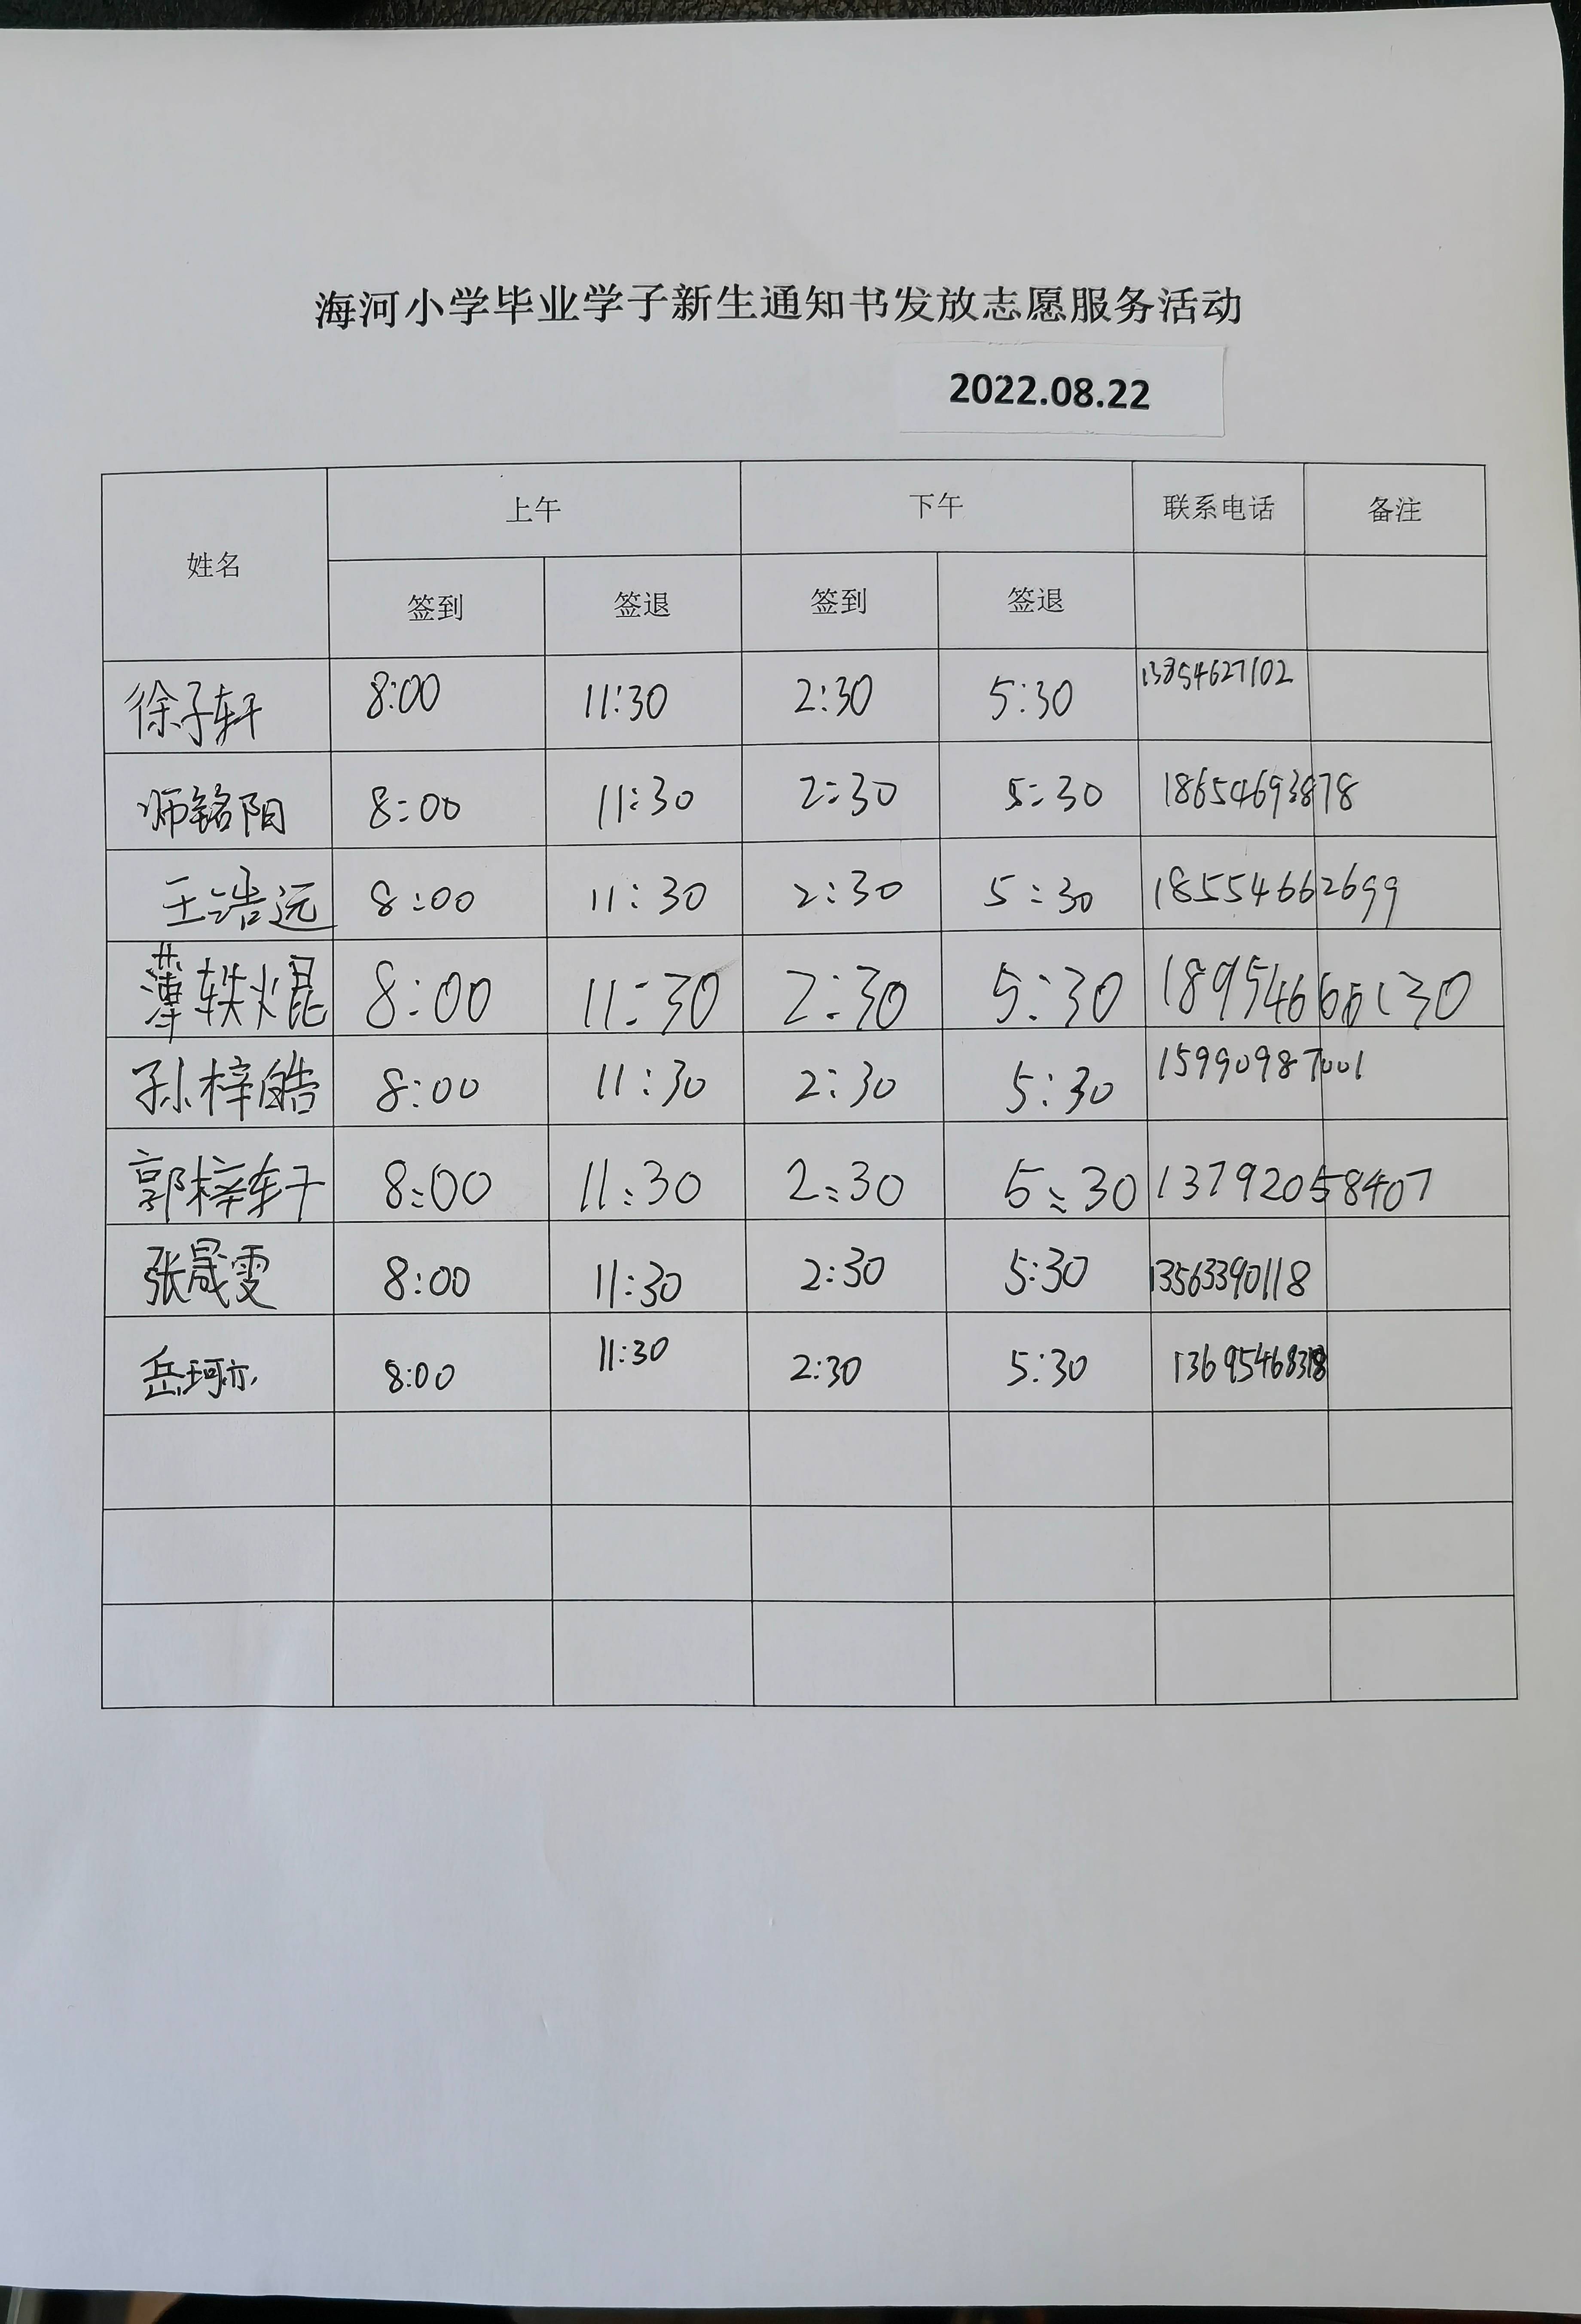 海河小学毕业学子新生通知书发放志愿服务活动
2022.08.22
姓名 上午 下午 联系电话 备注
签到 签退 签到 签退
徐子轩 8:00 11:30 2:30 5:30 13854627102
师铭阳 8:00 11:30 2:30 5:30 18654693878
王浩远 8:00 11:30 2:30 5:30 18554662699
薄轶焜 8:00 11:30 2:30 5:30
孙梓皓 8:00 11:30 2:30 5:30 15990987001
郭梓轩 8:00 11:30 2:30 5:30 13792058407
张晟雯 8:00 11:30 2:30 5:30 13563390118
岳珂亦 8:00 11:30 2:30 5:30